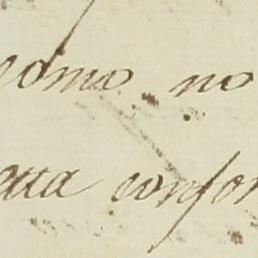 como no
atta confor